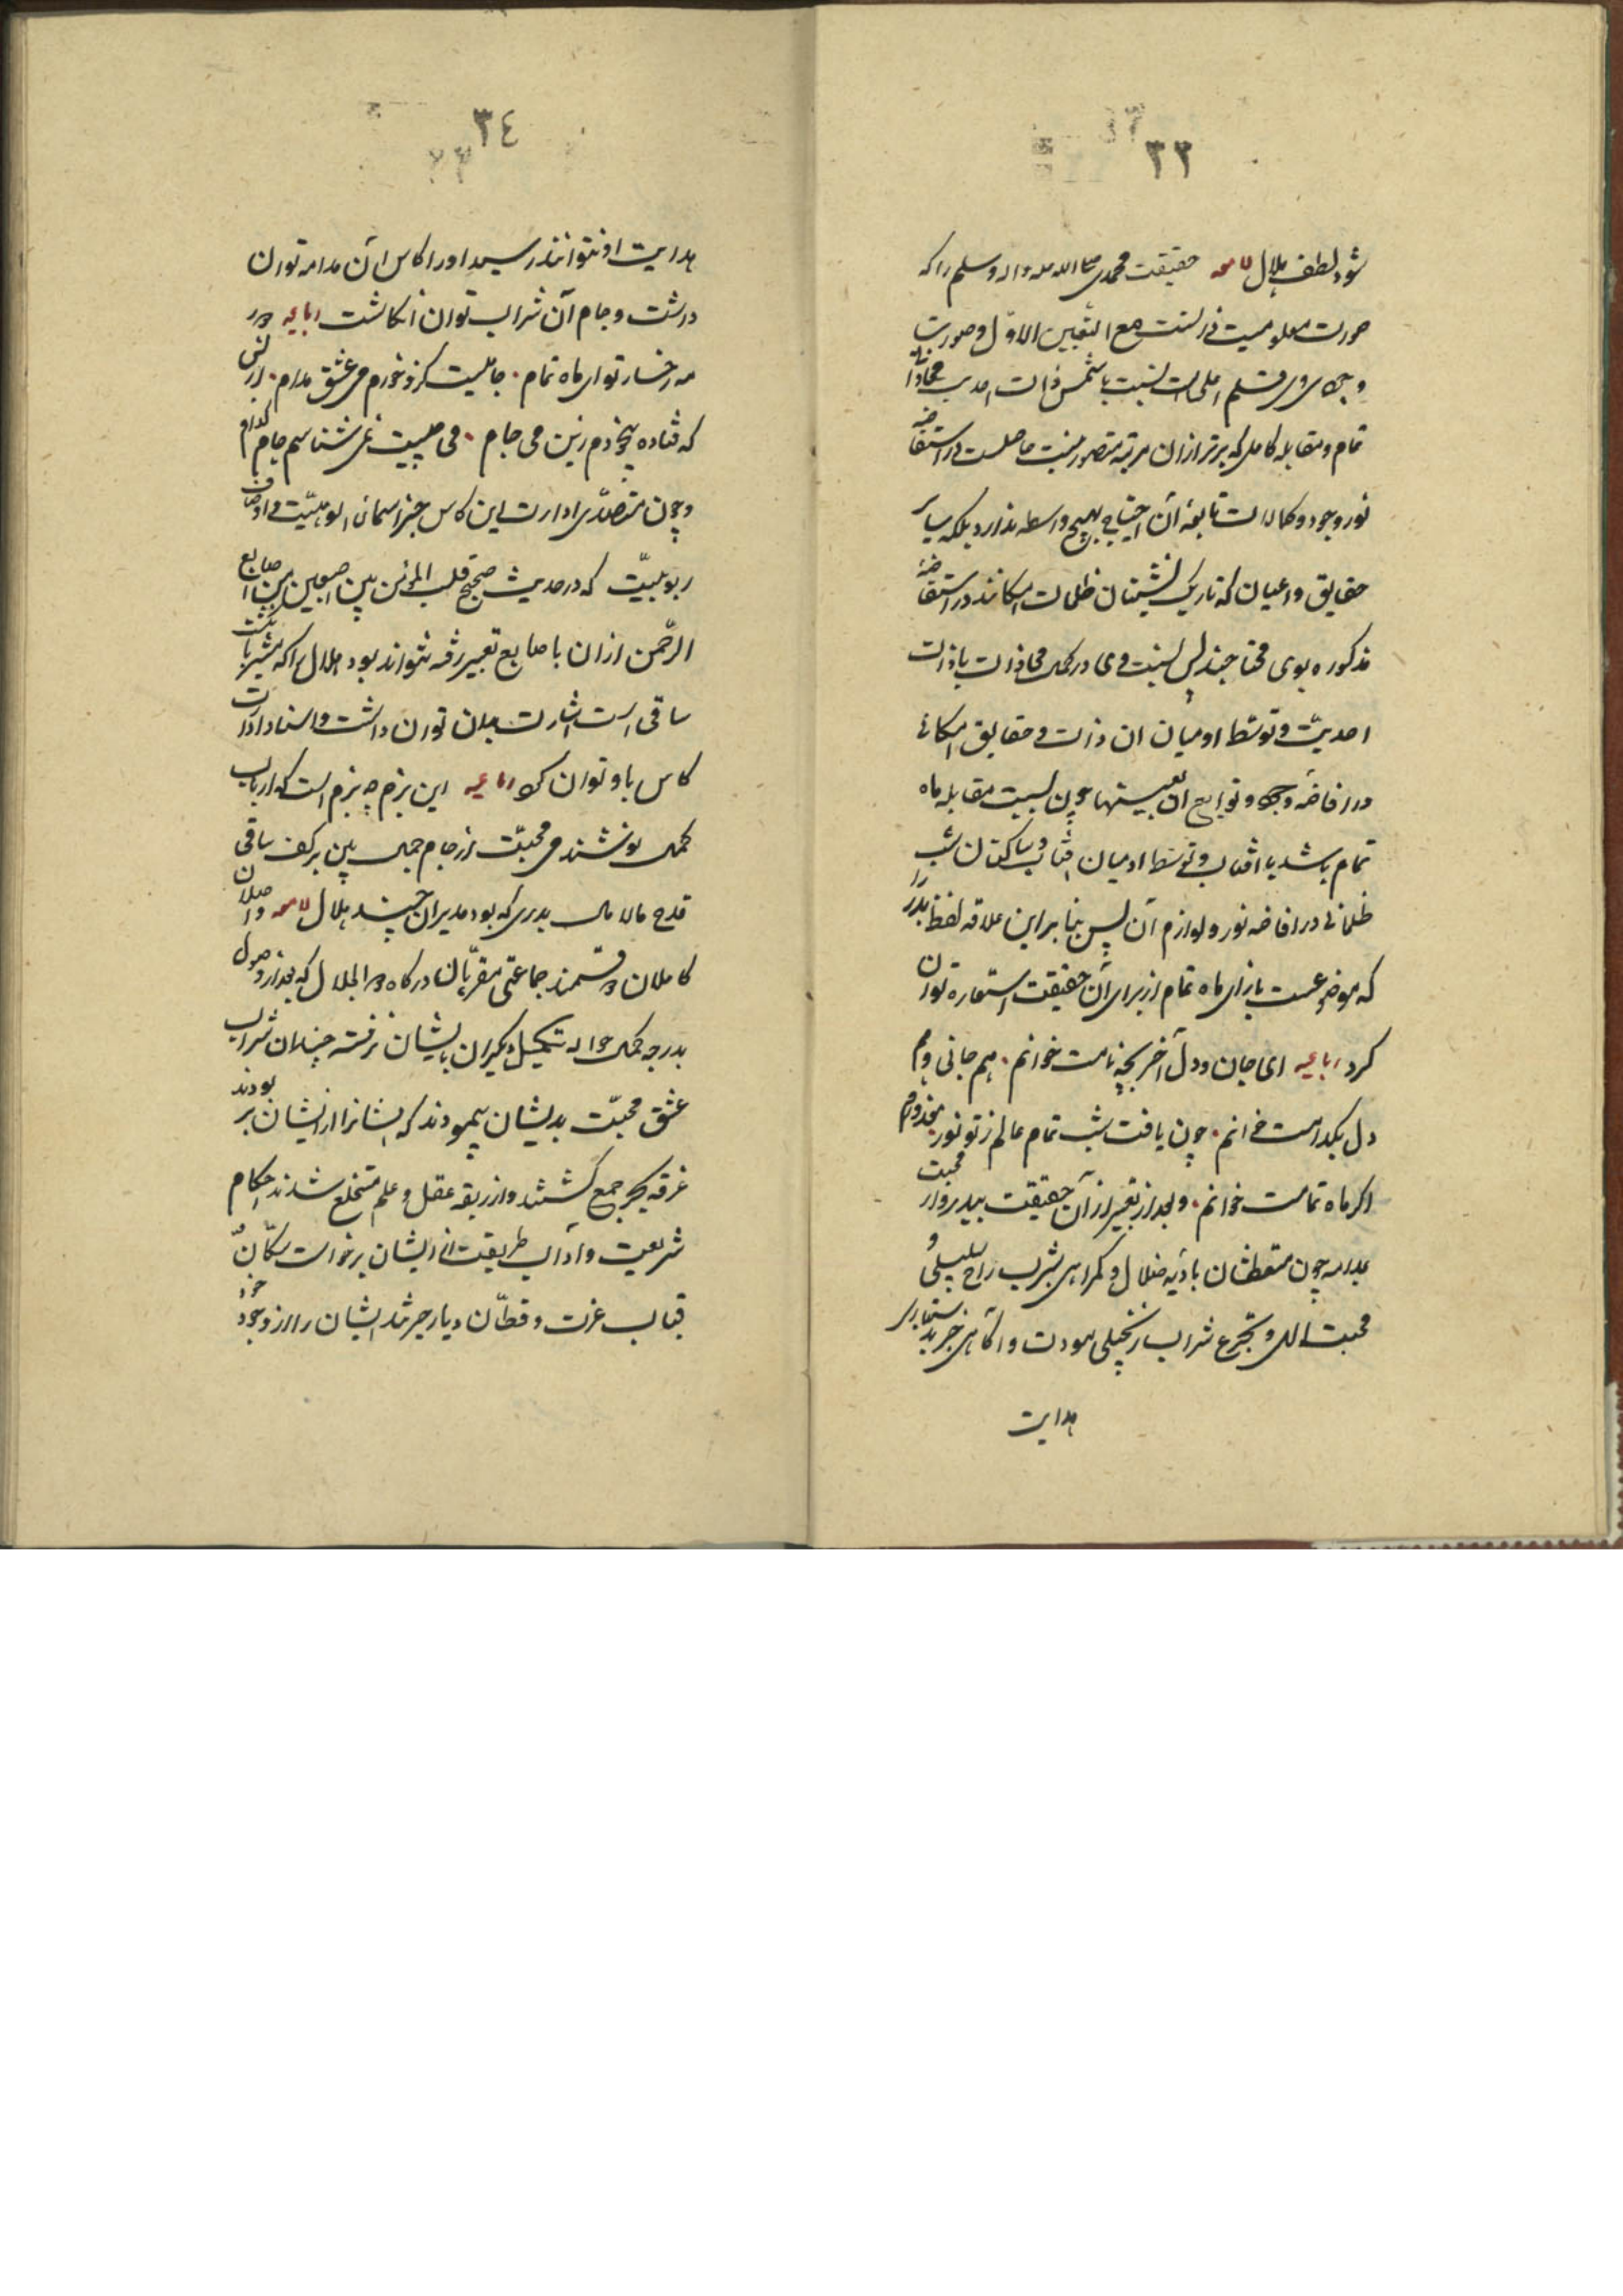 ٣٣
شود لطف هلال لامعه حقیقت محمدی صلی الله علیه واله وسلم را که
صورت معلومیت ذاتست مع التعین الاول و صورت
وجودی وی قلم اعلی است نسبت با شمس ذات احدیت محاذاة
تمام و مقابله کامل که برتر از ان مرتبه متصور نیست حاصلست در استفاضه
نور وجود و کمالات تابعه آن احتیاج بهیچ واسطه ندارد بلکه سایر
حقایق و اعیان که تاریک نشینان ظلمات امکانند در استفاضه
مذکوره بوی محتاجند پس نسبت وی در کمال محاذات با ذات
احدیت و توسط او میان ان ذات و حقایق امکانی
در افاضه وجود و توابع ان بعینها چون نسبت مقابله ماه
تمام باشد با آفتاب و توسط او میان آفتاب و ساکنان شب
ظلمانی در افاضه نور و لوازم آن پس بنا بر این علاقه لفظ بدر را
که موضوعست بازای ماه تمام از برای آن حقیقت استعاره توان
کرد رباعیه ای جان و دل آخر بچه نامت خوانم . هم جانی و هم
دل بکدامت خوانم . چون یافت شب تمام عالم ز تو نور معذورم
اگر ماه تمامت خوانم . و بعد از تعبیر از آن حقیقت ببدر و ادارت محبت
بمدامه چون متعطشان بادیه ضلال و گمراهی بشرب راح سلسبیلی و
محبت الهی و تجرع شراب زنجبیلی مودت و آگاهی جز بدستیاری
هدایت
٣٤
هدایت او نتوانند رسید او را کاس آن مدامه توان
داشت و جام آن شراب توان انگاشت رباعیه در دور
مه رخسار تو ای ماه تمام . جامیست کزو خورم می عشق مدام . از بس
که فتاده بیخودم زین می جام . می چیست نمی شناسم جام کدام
و چون متصدی ادارت این کاس جز اسمای الوهیت و اوصاف
ربوبیت که در حدیث صحیح قلب المؤمن بین اصبعین من اصابع
الرحمن از ان باصابع تعبیر رفته نتواند بود هلال را که مشیر باثبات
ساقی است اشارت بدان توان داشت و اسناد ادارت
کاس باو توان کرد رباعیه این بزم چه بزم است که ارباب
کمال نوشند می محبت از جام جمال بین بر کف ساقی
قدح مالامال بدری که بود مدیر ان چند هلال لامعه واصلان
کاملان دو قسمند جماعتی مقربان درگاه ذو الجلال که بعد از وصول
بدرجه کمال حواله تکمیل دیگران بایشان نرفته چندان شراب
عشق محبت بدیشان پیمودند که ایشانرا از ایشان بربودند
غرقه بحر جمع گشتند و از ربقه عقل و علم منخلع شدند احکام
شریعت و آداب طریقت از ایشان برخواست سکان
قباب عزت و قطان دیار حیرتند ایشان را از وجود خود